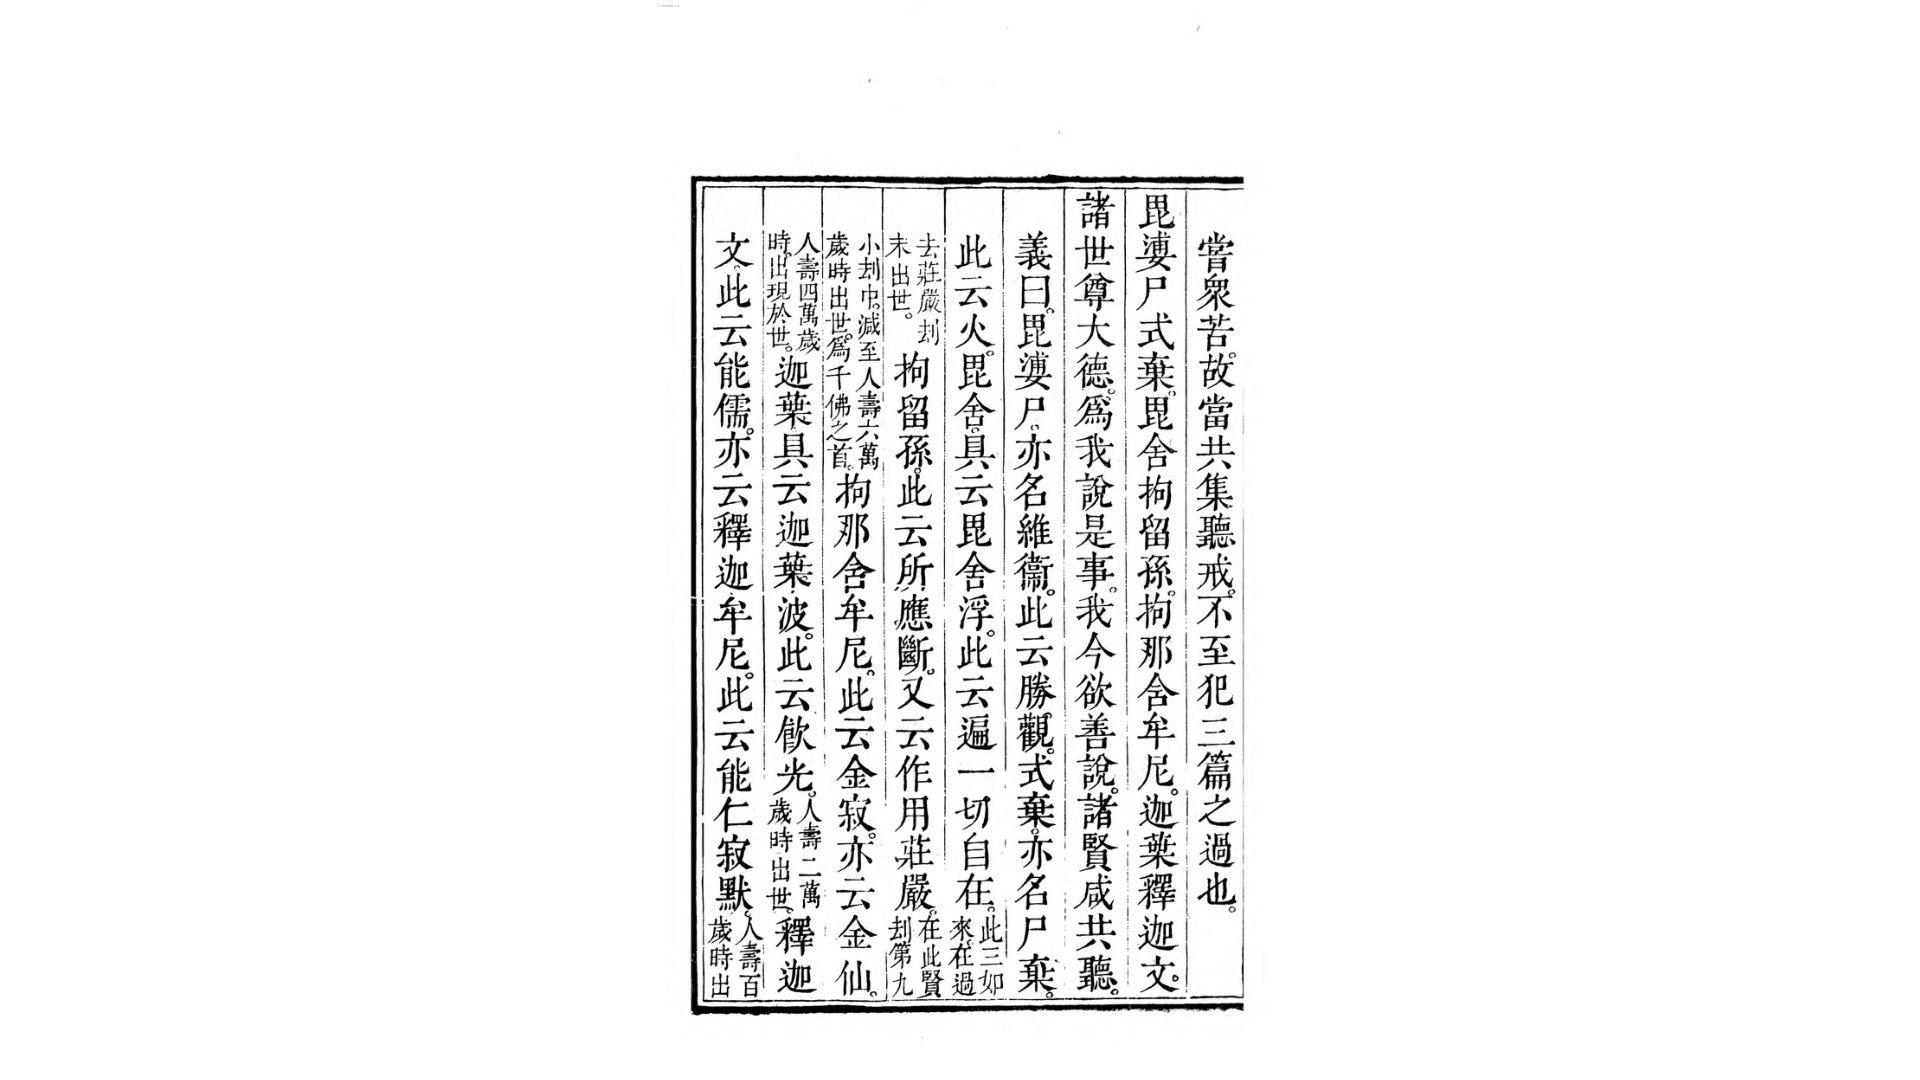 嘗衆苦。故當共集聽戒。不至犯三篇之過也。
毘婆尸式棄。毘舍拘留孫。拘那含牟尼。迦葉釋迦文。
諸世尊大德。爲我說是事。我今欲善說。諸賢咸共聽。
義曰。毘婆尸。亦名維衞。此云勝觀。式棄。亦名尸棄。
此云火。毘舍。具云毘舍浮。此云遍一切自在。此三如來。在過
去莊嚴刦末出世。拘留孫。此云所應斷。又云作用莊嚴。在此賢刦第九
小刦中。減至人壽六萬歲時出世。爲千佛之首。拘那含牟尼。此云金寂。亦云金仙。
人壽四萬歲時。出現於世。迦葉。具云迦葉波。此云飲光。人壽二萬歲時出世。釋迦
文。此云能儒。亦云釋迦牟尼。此云能仁寂默。人壽百歲時出